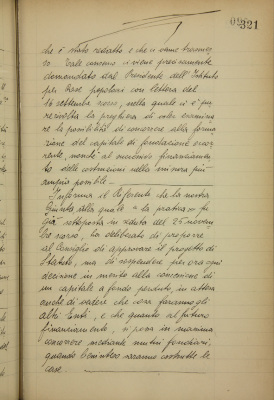 321
che è stato redatto e che ci viene trasmes-
so. Tale concorso ci viene precisamente
domandato dal Presidente dell'Istituto
per Case popolari con lettera del
16 settembre scorso, nella quale ci è pur
rivolta la preghiera di voler esamina-
re la possibilità di concorrere alla forma-
zione del capitale di fondazione occor-
rente, nonché al successivo finanziamen-
to delle costruzioni nella misura più
ampia possibile.
Informa il Referente che la nostra
Giunta alla quale la pratica fu
già sottoposta in seduta del 25 novem-
bre scorso, ha deliberato di proporre
al Consiglio di approvare il progetto di
Statuto, ma di sospendere per ora ogni
decisione in merito alla concessione di
un capitale a fondo perduto, in attesa
anche di vedere che cosa faranno gli
altri Enti, e che quanto al futuro
finanziamento, si possa in massima
concorrere mediante mutui fondiari,
quando saranno costrutte le
case.